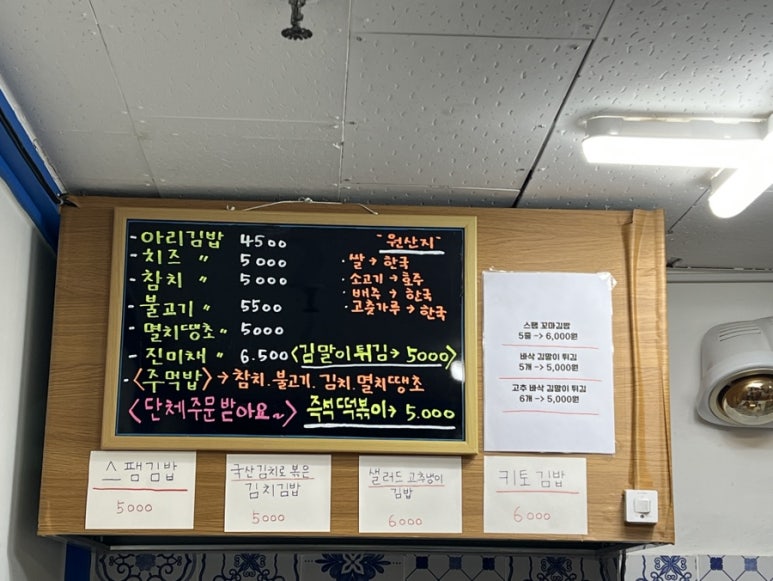 -아리김밥 4500
-치즈 〃 5000
-참치 〃 5000
-불고기 〃 5500
-멸치땡초 〃 5000
-진미채 〃 6.500
<김말이튀김→5000>
-<주먹밥>→참치.불고기.김치.멸치땡초
<단체주문받아요~>
즉석떡볶이→5.000
"원산지"
·쌀→한국
·소고기→호주
·배추→한국
·고춧가루→한국
스팸 꼬마김밥
5줄 -> 6,000원
바삭 김말이 튀김
5개 -> 5,000원
고추 바삭 김말이 튀김
6개 -> 5,000원
스팸김밥
5000
국산김치로볶은
김치김밥
5000
샐러드 고추냉이
김밥
6000
키토 김밥
6000